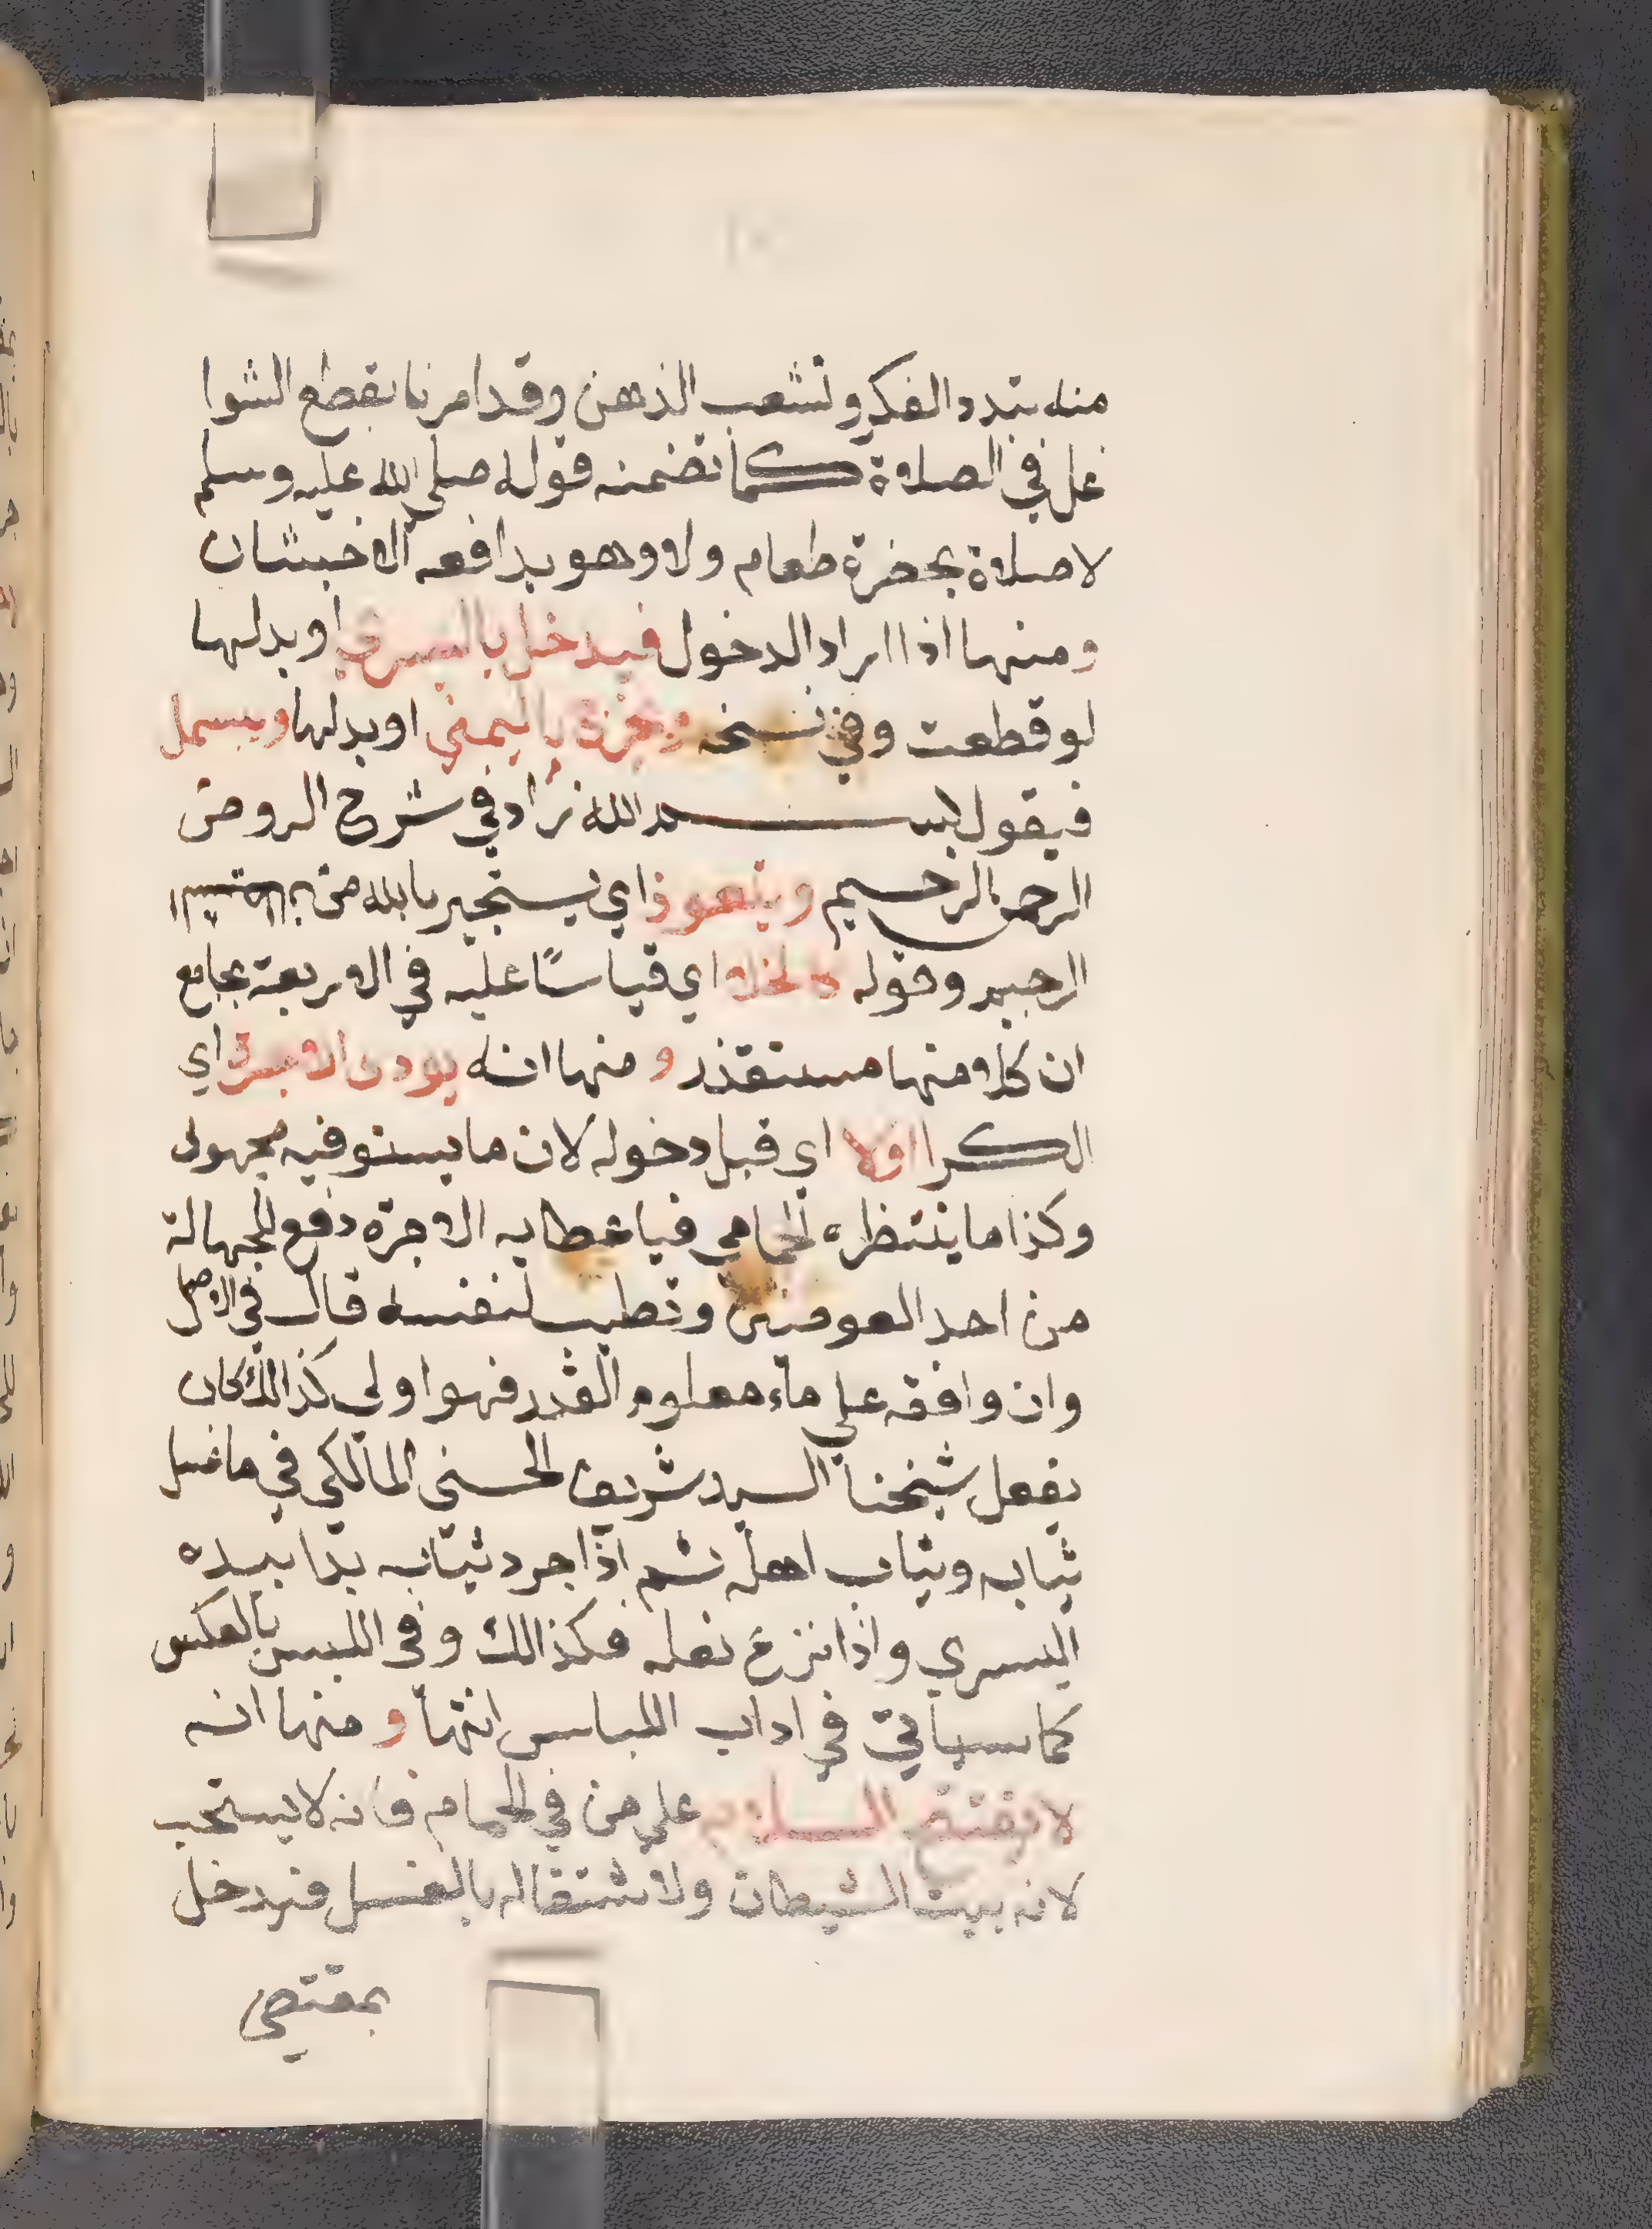 منه تبدد الفكر وتشعب الذهن وقد امرنا بقطع الشوا
غل في الصلاة كما تضمنه قوله صلي الله عليه وسلم
لا صلاة بحضرة طعام ولا وهو يدافعه الاخبثان
ومنها اذا اراد الدخول فيدخل باليسري او بدلها
لو قطعت وفي نسخه وبخرج باليمني او بدلها ويبسمل
فيقول بسم الله زاد في شرح الروض
الرحمن الرحيم ويتعوذ اي يستجير بالله من
الرجيم وقوله اي قياسًا عليه في الاربعة بجامع
ان كلا منها مستقذر و منها انه اي
الكرا اولا اي قبل دخوله لان ما يستوفيه مجهول
وكذا ما ينتظره الحمامي فباعطايه الاجرة دفع للجهالة
من احد العوضين وتطيب لنفسه قال في الاصل
وان وافقه علي ماء معلوم القدر فهو اولي كذالك كان
يفعل شيخنا السيد شريف الحسني المالكي في ما غسل
ثيابه وثياب اهله ثم اذا جرد ثيابه بدا بيده
اليسري واذا نزع نعله فكذالك وفي اللبس بالعكس
كما سياتي في اداب اللباس انتها و منها انه
لا يفتتح السلام علي من في الحمام فانه لا يستحب
لانه بيت الشيطان ولاشتغاله بالغسل فيدخل
بمقتضي